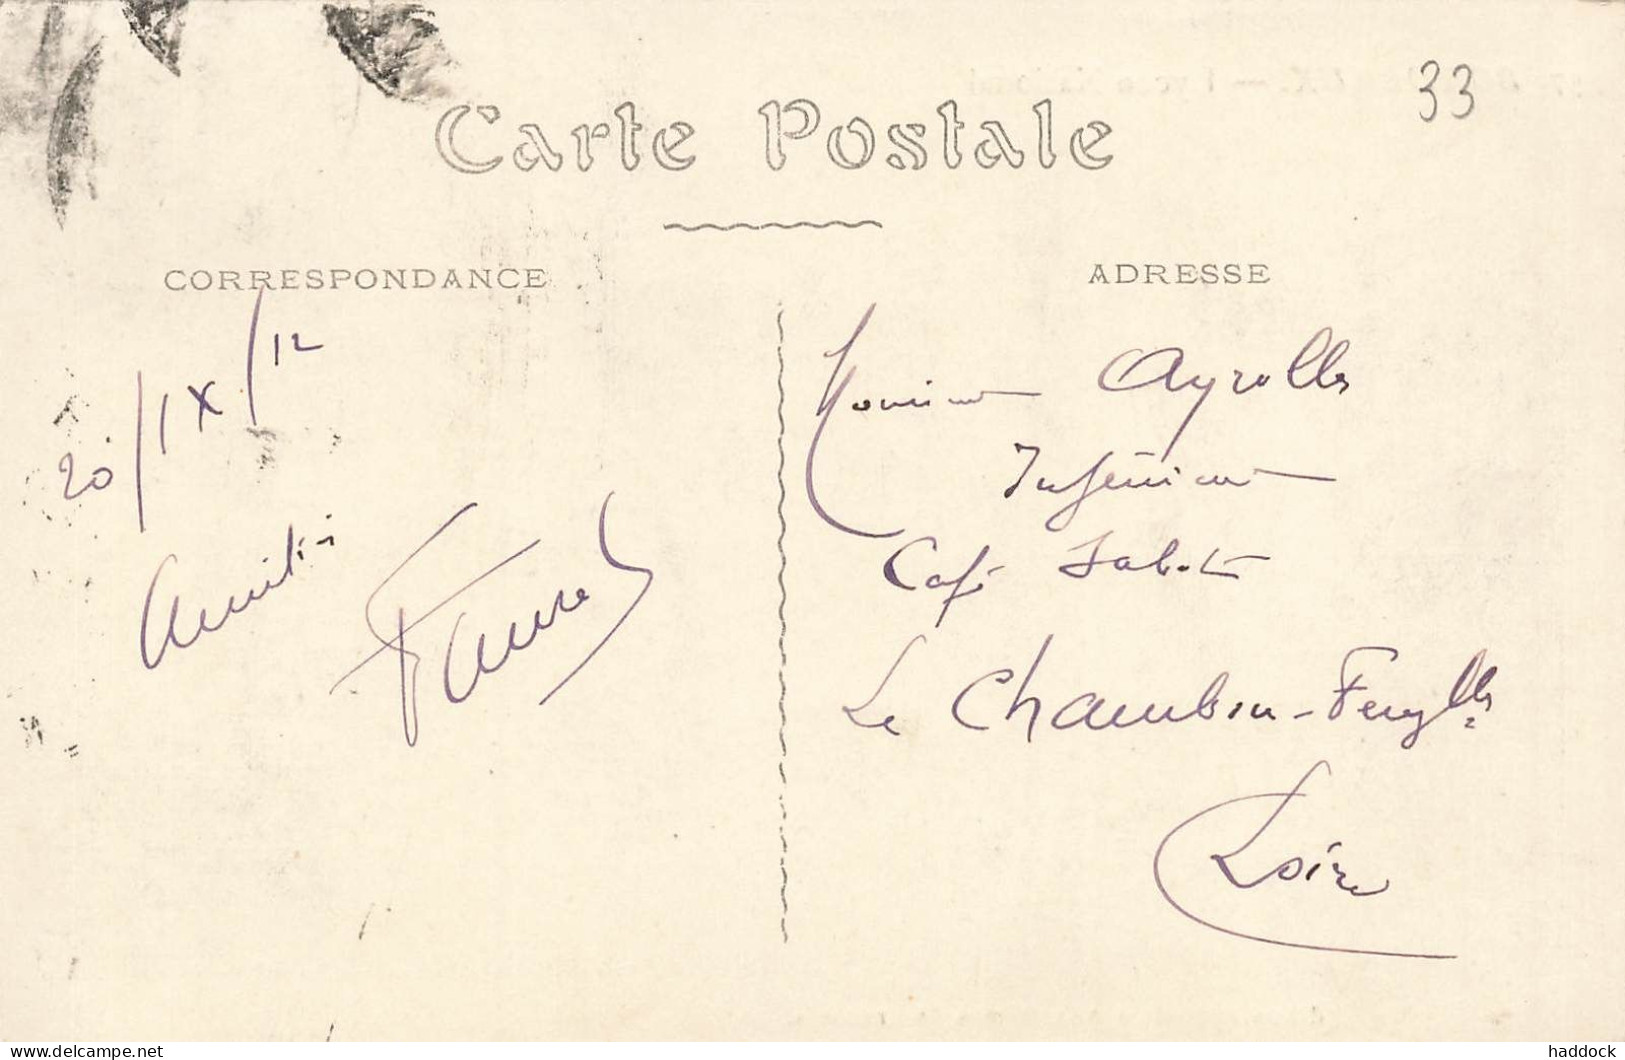 33
Carte Postale
CORRESPONDANCE
20/IX/12
Amitiés
ADRESSE
Monsieur Ayrolles
Ingénieur
Café
Le Chambon-Feugerolles
Loire
delcampe.net
haddock